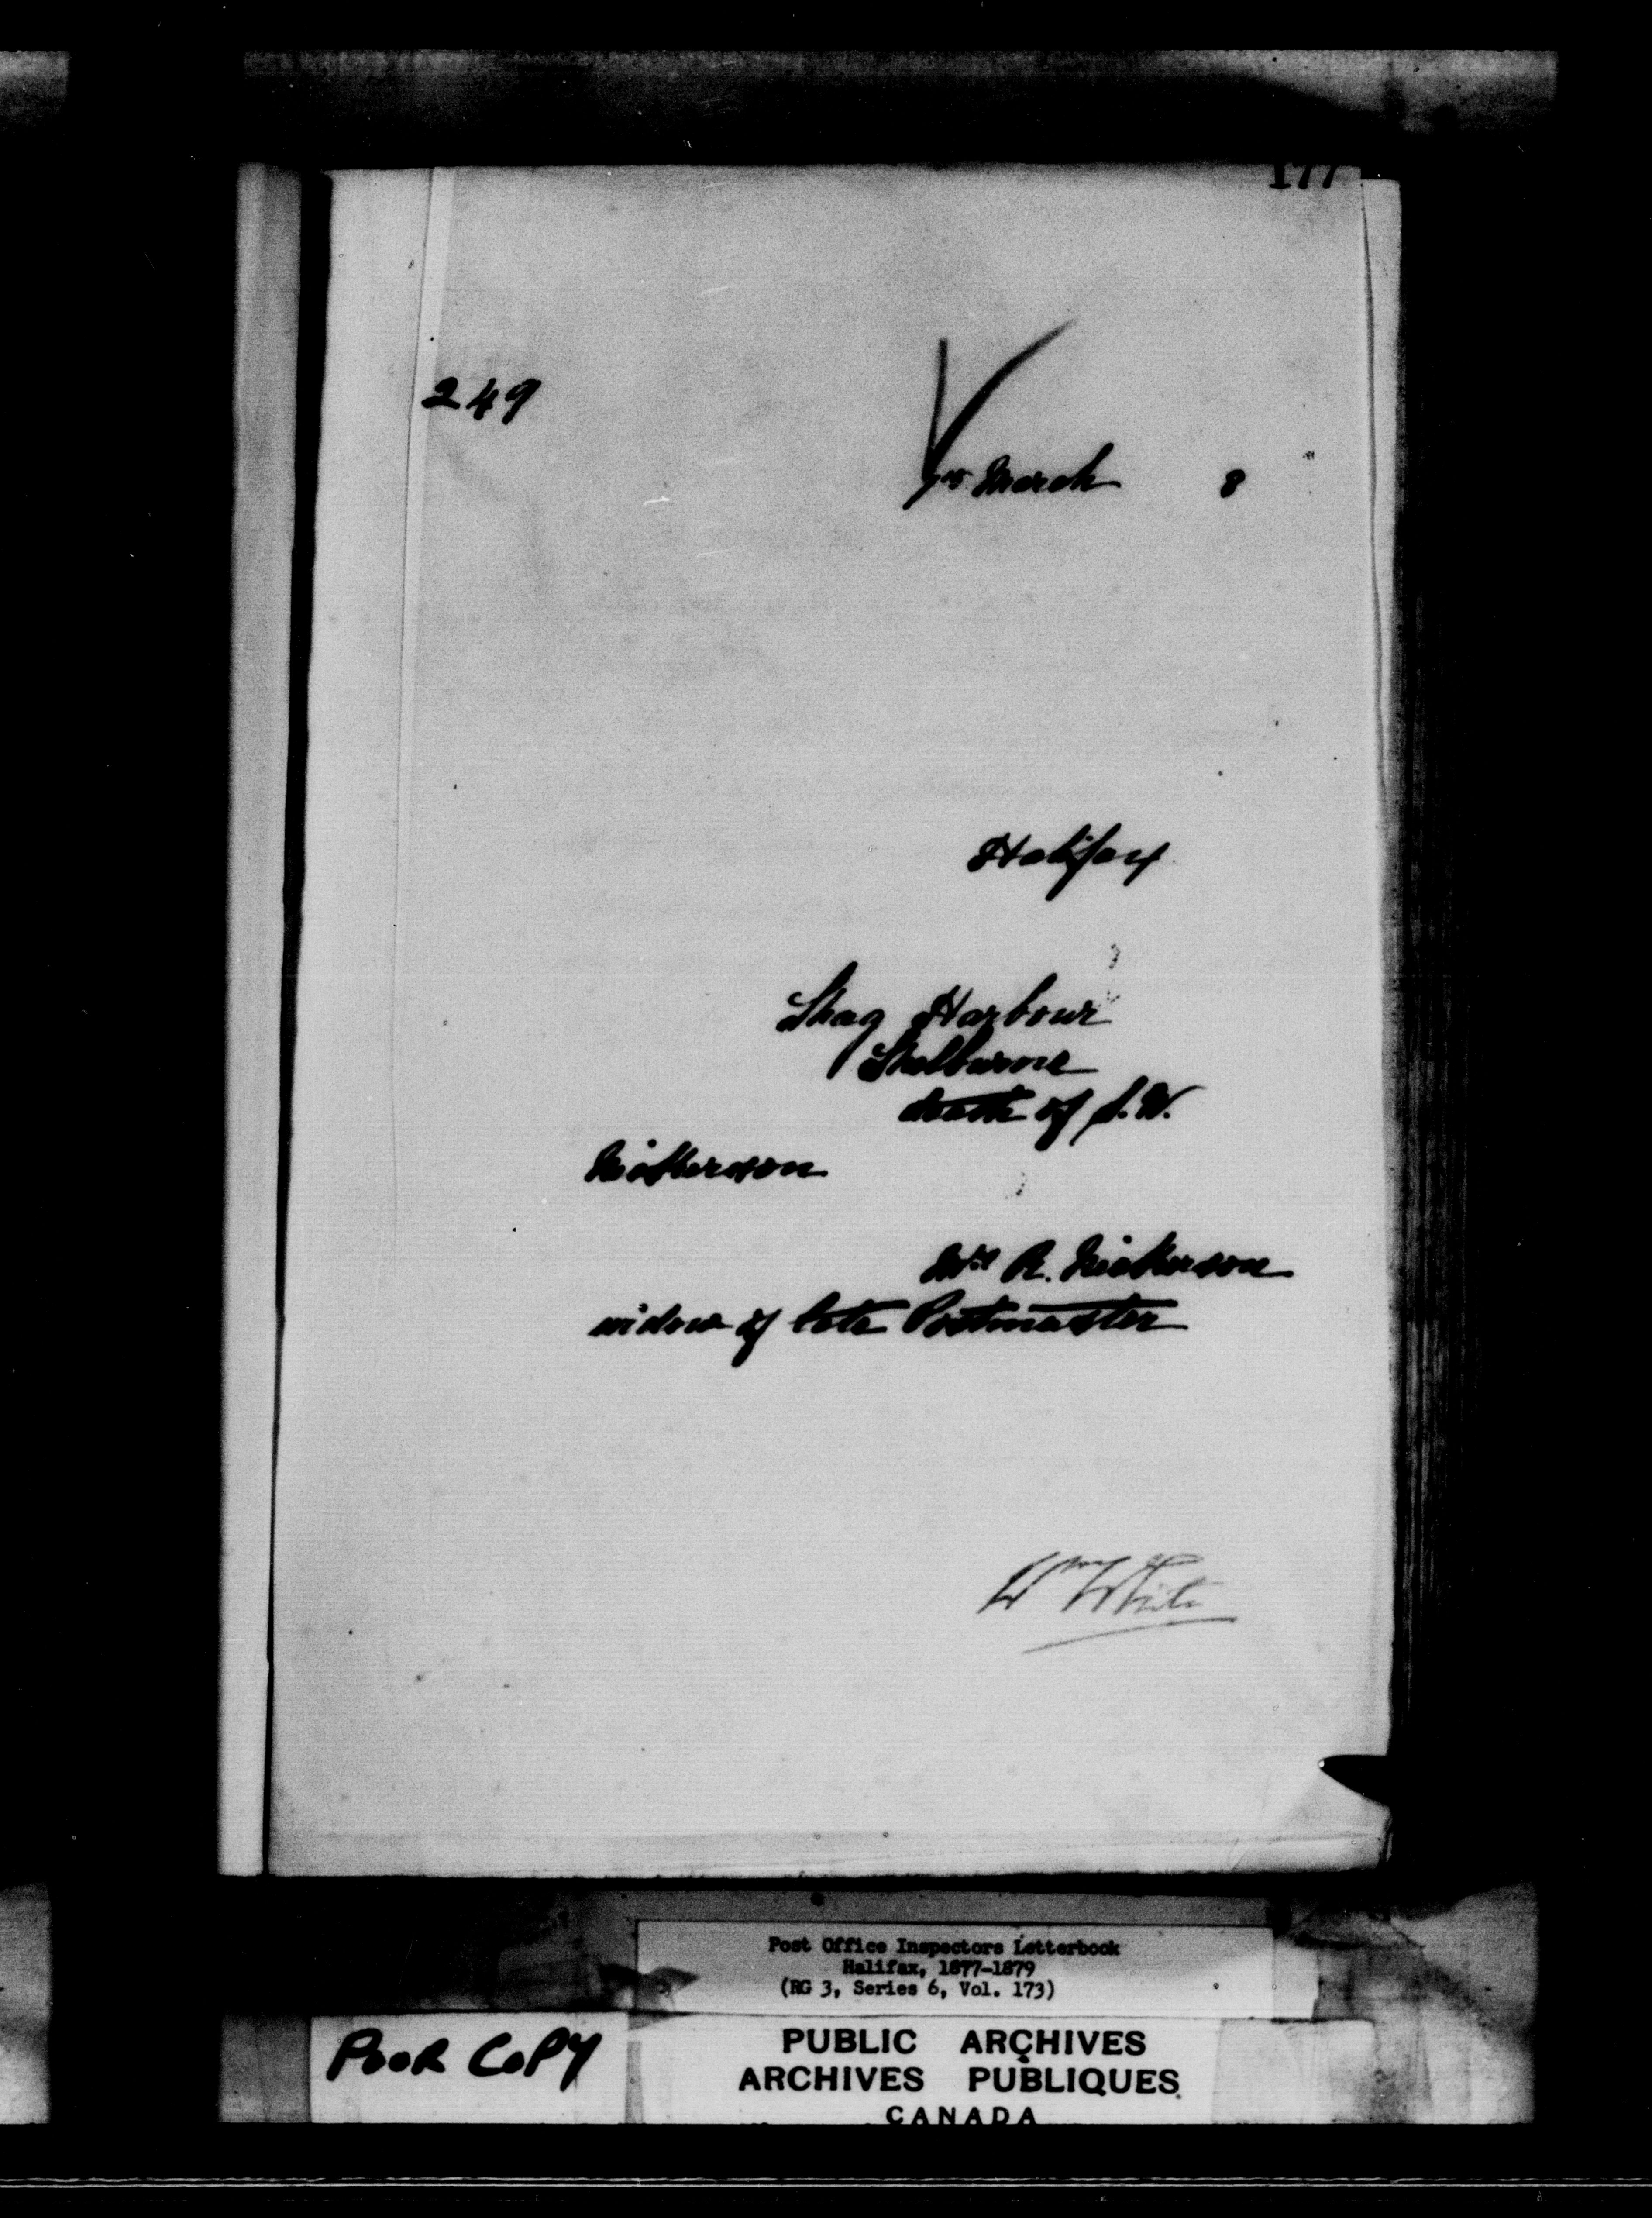 177
249
March 8
Halifax
Shag Harbour
Shelburne
death of J.W.
Nickerson
Mrs R. Nickerson
widow of late Postmaster
Wm White
Post Office Inspectors Letterbook
Halifax, 1877-1879
(RG 3, Series 6, Vol. 173)
POOR COPY
PUBLIC ARCHIVES
ARCHIVES PUBLIQUES
CANADA